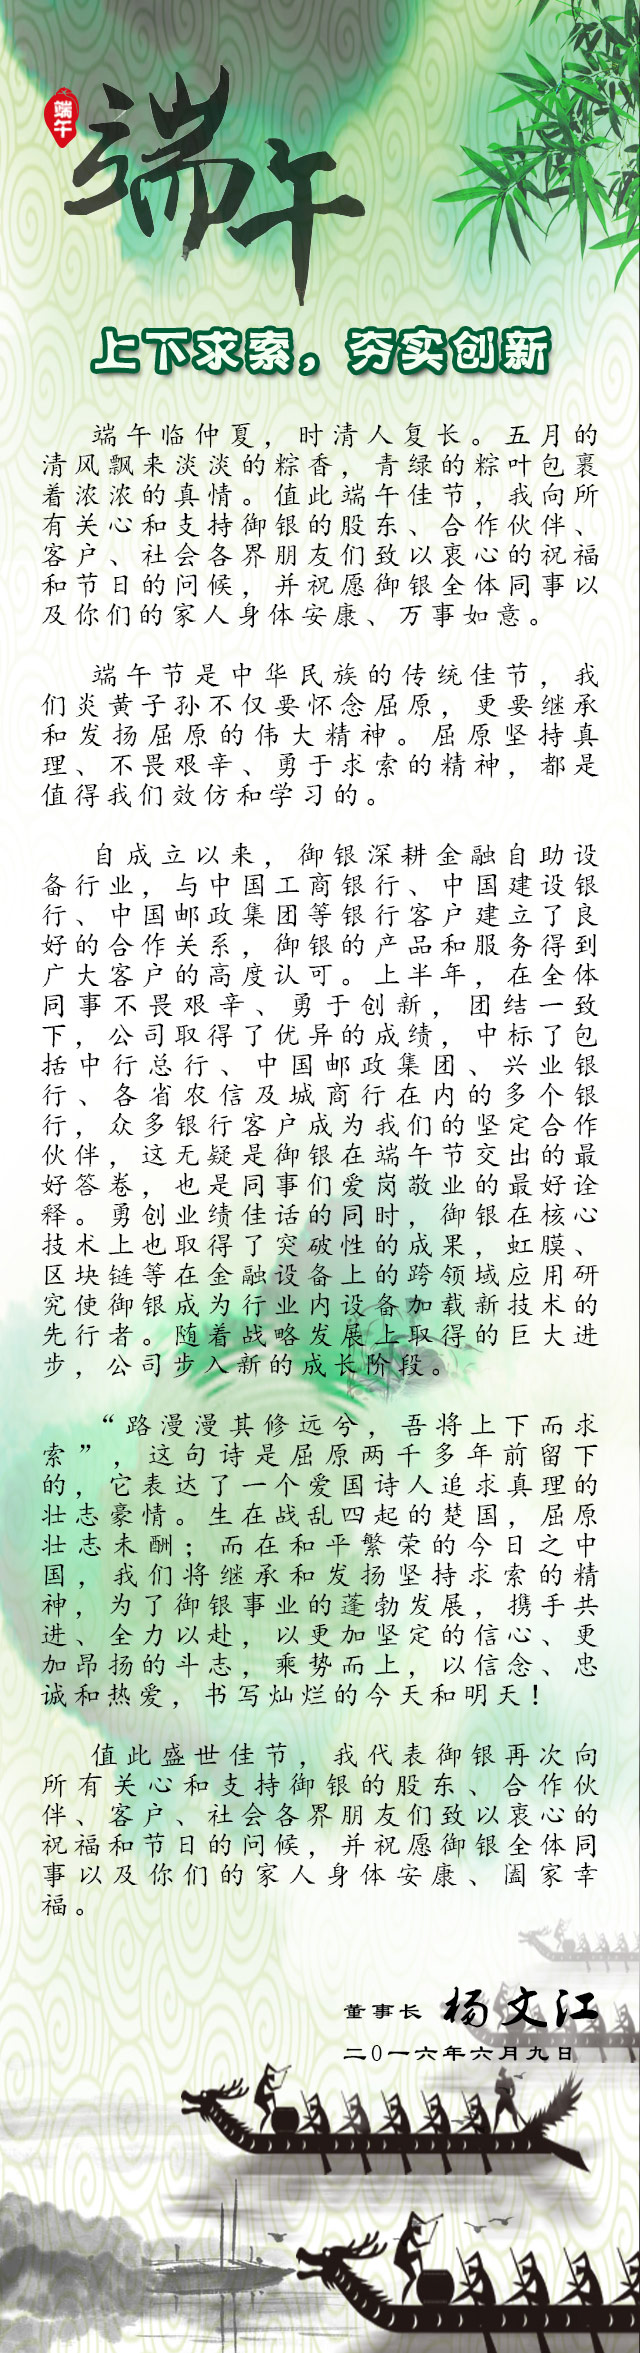 端午
端午
上下求索，夯实创新
端午临仲夏，时清人复长。五月的
清风飘来淡淡的粽香，青绿的粽叶包裹
着浓浓的真情。值此端午佳节，我向所
有关心和支持御银的股东、合作伙伴、
客户、社会各界朋友们致以衷心的祝福
和节日的问候，并祝愿御银全体同事以
及你们的家人身体安康、万事如意。
端午节是中华民族的传统佳节，我
们炎黄子孙不仅要怀念屈原，更要继承
和发扬屈原的伟大精神。屈原坚持真
理、不畏艰辛、勇于求索的精神，都是
值得我们效仿和学习的。
自成立以来，御银深耕金融自助设
备行业，与中国工商银行、中国建设银
行、中国邮政集团等银行客户建立了良
好的合作关系，御银的产品和服务得到
广大客户的高度认可。上半年，在全体
同事不畏艰辛、勇于创新，团结一致
下，公司取得了优异的成绩，中标了包
括中行总行、中国邮政集团、兴业银
行、各省农信及城商行在内的多个银
行，众多银行客户成为我们的坚定合作
伙伴，这无疑是御银在端午节交出的最
好答卷，也是同事们爱岗敬业的最好诠
释。勇创业绩佳话的同时，御银在核心
技术上也取得了突破性的成果，虹膜、
区块链等在金融设备上的跨领域应用研
究使御银成为行业内设备加载新技术的
先行者。随着战略发展上取得的巨大进
步，公司步入新的成长阶段。
“路漫漫其修远兮，吾将上下而求
索”，这句诗是屈原两千多年前留下
的，它表达了一个爱国诗人追求真理的
壮志豪情。生在战乱四起的楚国，屈原
壮志未酬；而在和平繁荣的今日之中
国，我们将继承和发扬坚持求索的精
神，为了御银事业的蓬勃发展，携手共
进、全力以赴，以更加坚定的信心、更
加昂扬的斗志，乘势而上，以信念、忠
诚和热爱，书写灿烂的今天和明天！
值此盛世佳节，我代表御银再次向
所有关心和支持御银的股东、合作伙
伴、客户、社会各界朋友们致以衷心的
祝福和节日的问候，并祝愿御银全体同
事以及你们的家人身体安康、阖家幸
福。
董事长 杨文江
二0一六年六月九日